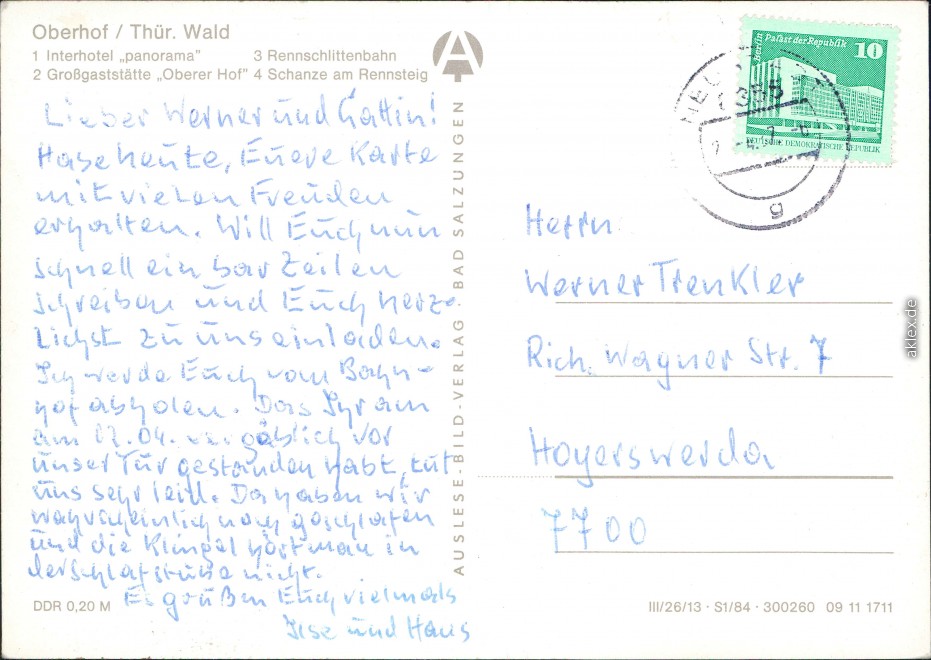 Oberhof / Thür. Wald
1 Interhotel „panorama" 3 Rennschlittenbahn
2 Großgaststätte „Oberer Hof" 4 Schanze am Rennsteig
Lieber Werner und Gattin!
Habe heute, Euere Karte
mit vielen Freuden
erhalten. Will Euch nun
schnell ein bar Zeilen
schreiben und Euch herz-
lichst zu uns einladen.
Ich werde Euch vom Bahn-
hof abholen. Das Ihr am
am 12.04. vergäblich vor
unser Tür gestanden habt, tut
uns sehr leid. Da haben wir
wahrscheinlich noch geschlafen
und die Klingel hört man in
der Schlafstube nicht.
Es grüßen Euch vielmals
Ilse und Hans
DDR 0,20 M
AUSLESE-BILD-VERLAG BAD SALZUNGEN
Berlin Palast der Republik
10
DEUTSCHE DEMOKRATISCHE REPUBLIK
g
Herrn
Werner Trenkler
Rich. Wagner Str. 7
Hoyerswerda
7700
III/26/13 · S1/84 · 300260 09 11 1711
aklex.de